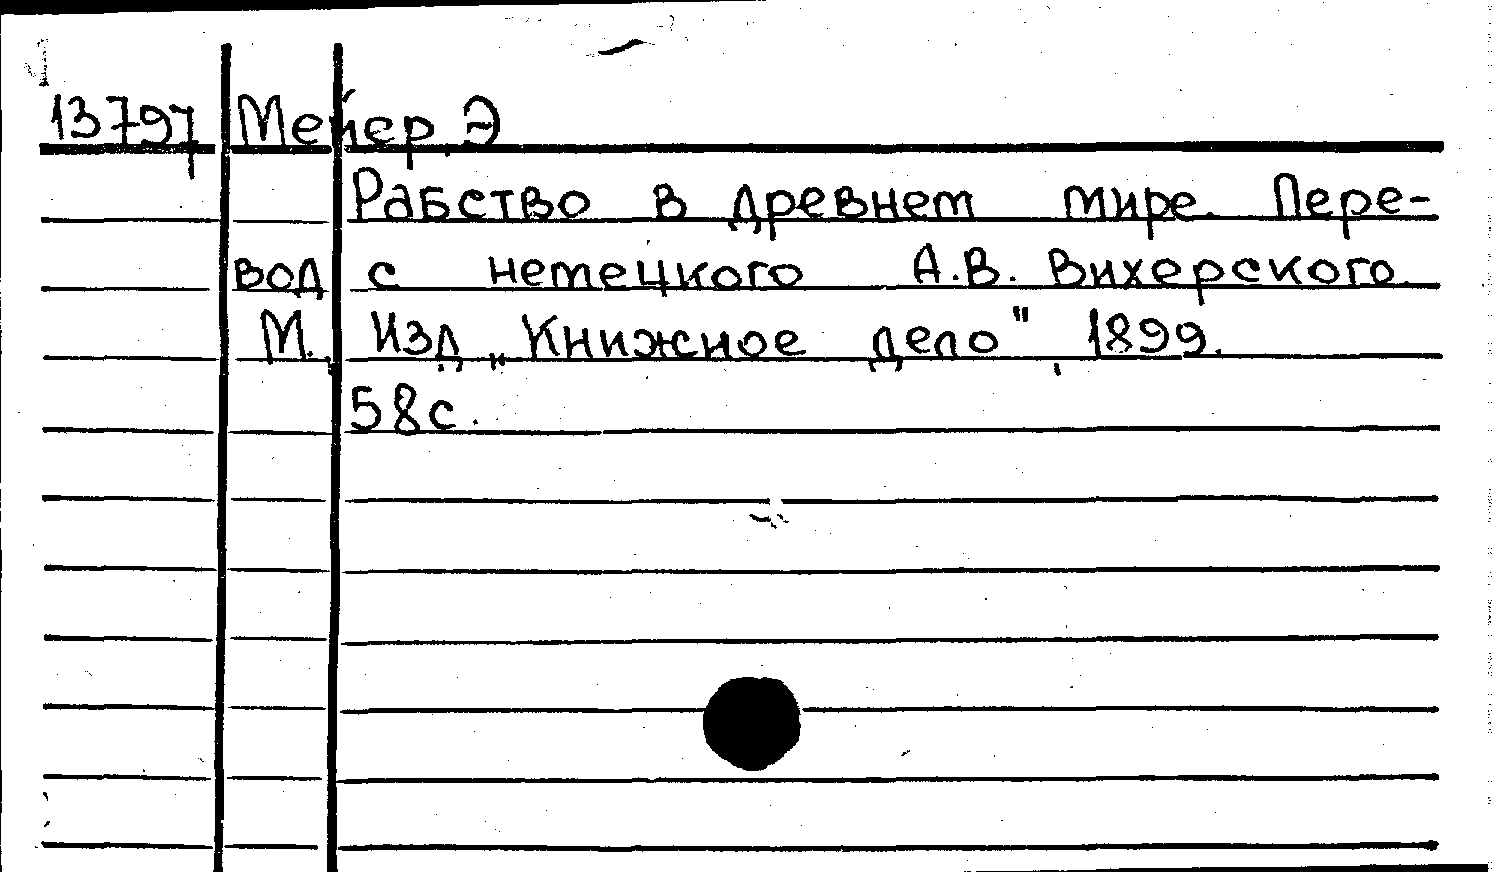 13797 Мейер, Э
Рабство в древнем мире. Пере-
вод с немецкого А.В. Вихерского.
М., Изд „Книжное дело", 1899.
58с.